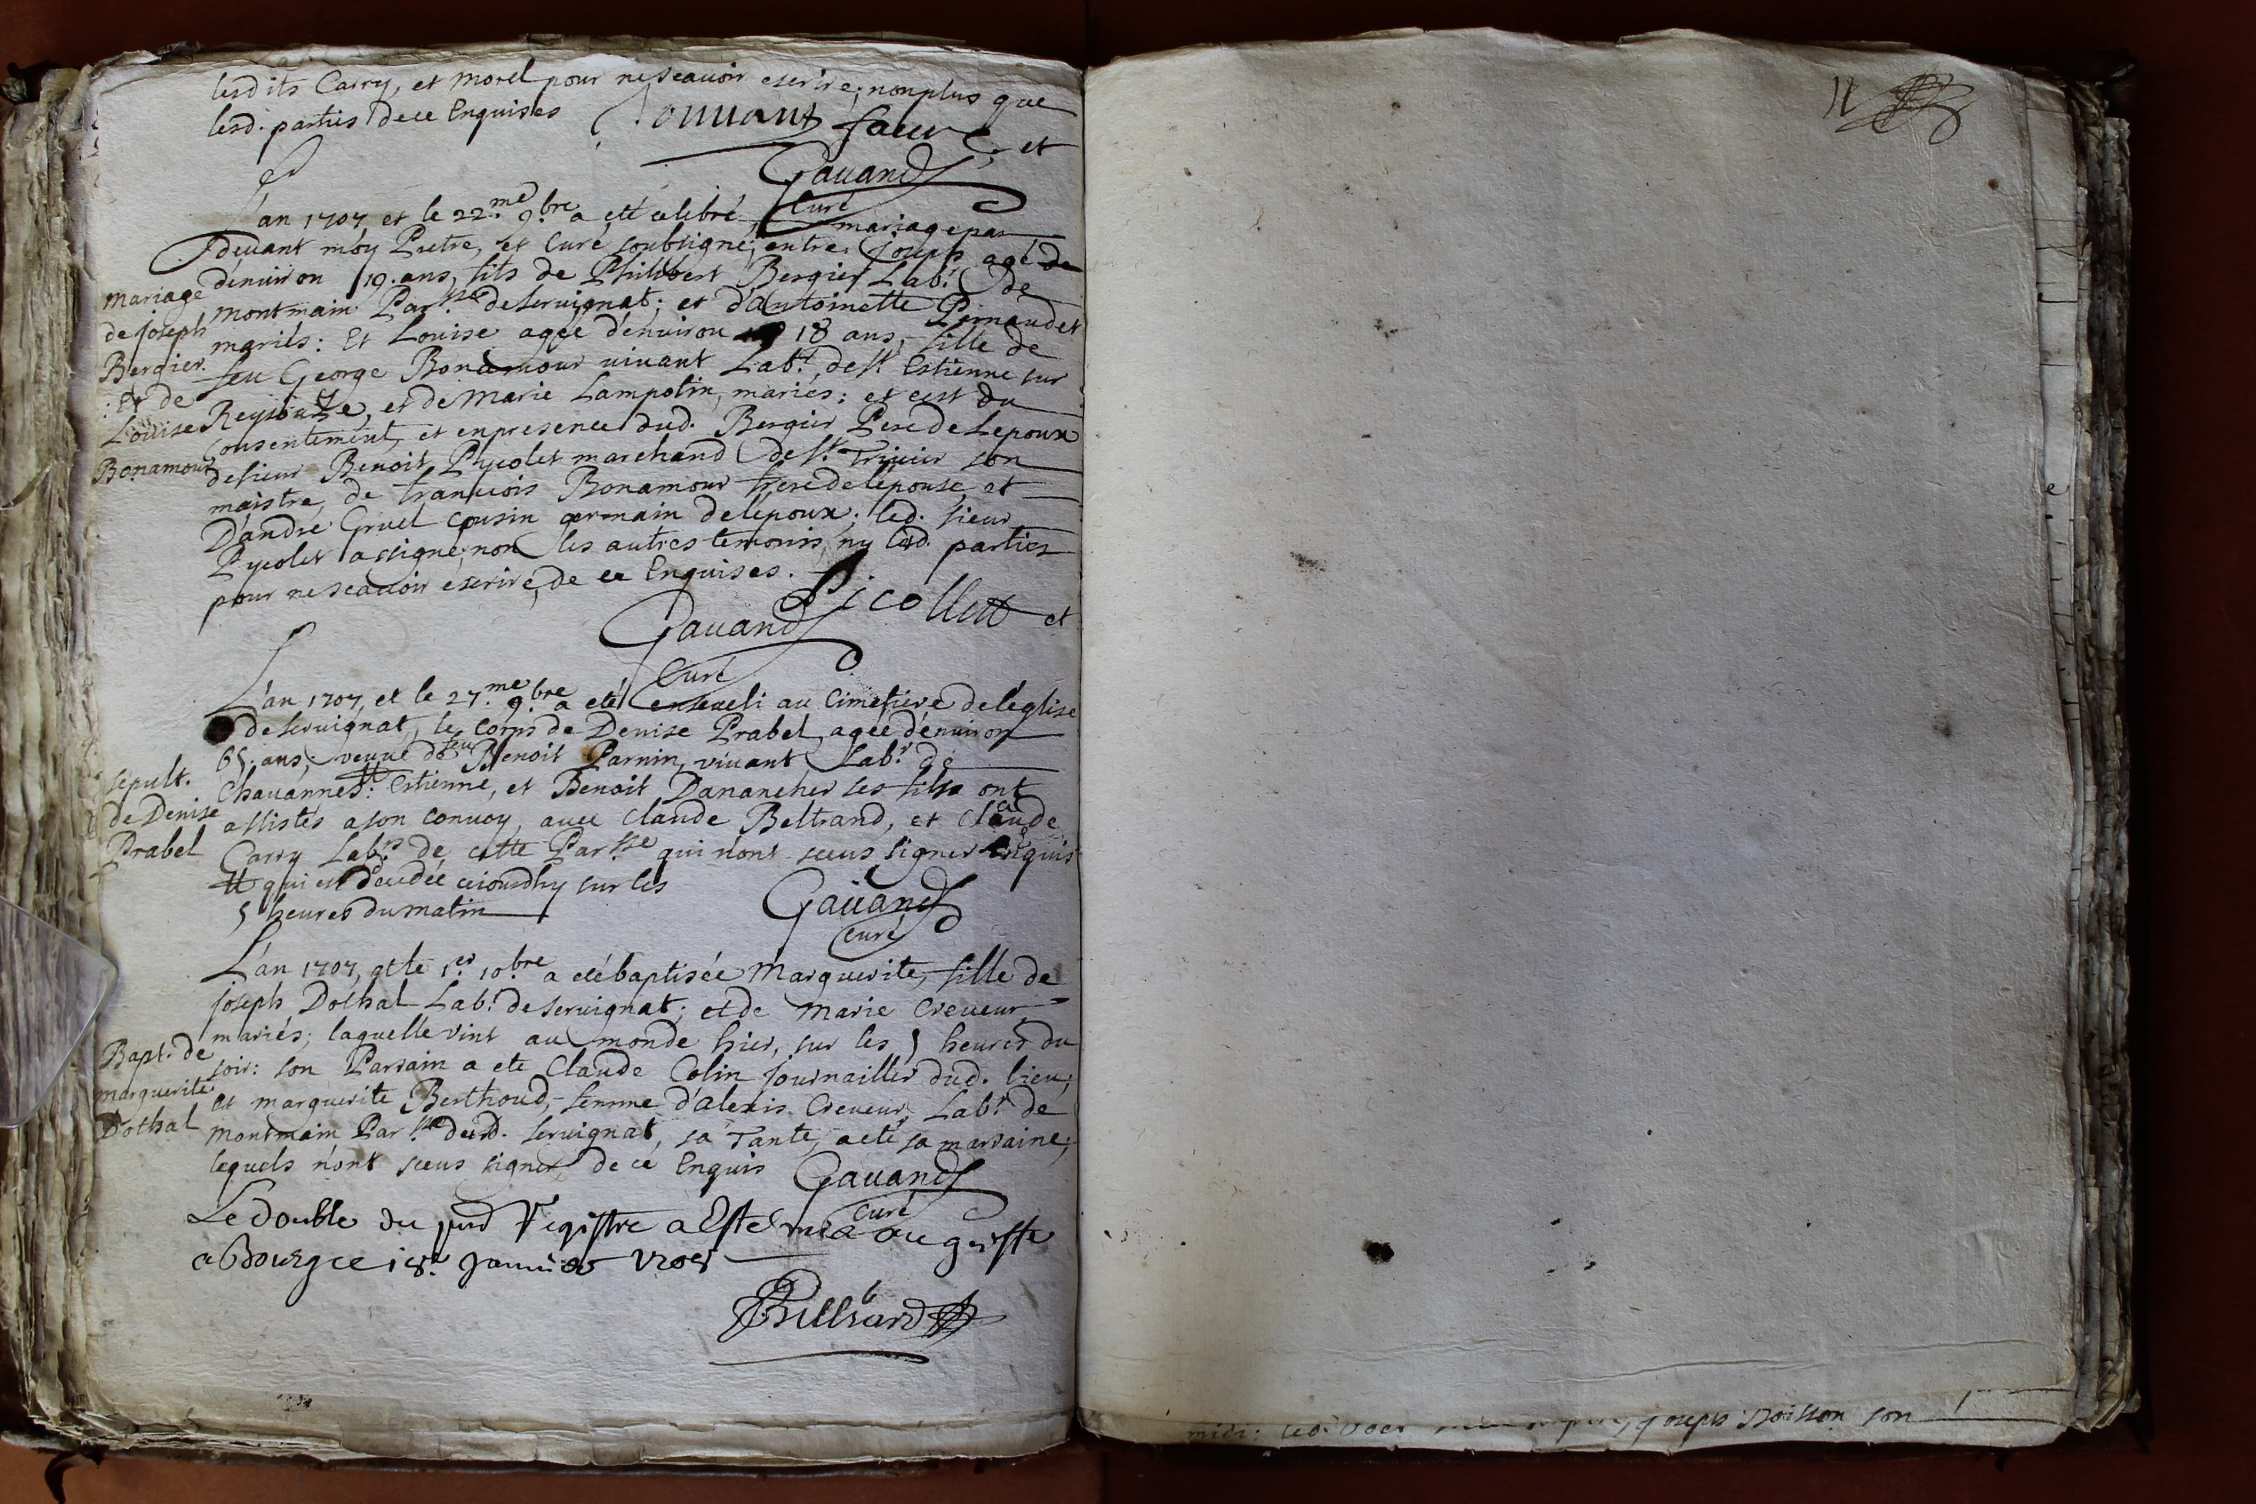 lesdits Carry, et Morel pour ne scavoir escrire; non plus que
lesd. parties de ce Enquises Jouvant faure et
Gavand
Curé
L'an 1707, et le 22.me 9.bre a été celibré mariage par
devant moy Pretre, et Curé soubsigné; entre Joseph agé de
denuiron 19. ans, fils de Philibert Bergier Lab.r de
montmain Par.sse de Seruignat; et d'Antoinette Pernaudet
mariés: Et Louise agée d'enuiron 18 ans, fille de
feu George Bonamour viuant Lab.r de S.t Estienne sur
Reyssouze, et de Marie Lampolin, mariés: et c'est du
consentement, et en presence dud. Bergier Pere de Lepoux
de sieur Benoit Pycolet marchand de S.t Triuier son
maistre, de francois Bonamour frere de l'epouse, et
D'andre Gruel cousin germain de lepoux; led. sieur
Pycolet a signé, non les autres temoins, ny lesd. parties
pour ne scauoir escrire, de ce Enquises.
Picollet et
Gavand
Curé
mariage
de joseph
Bergier.
: Et de
Louise
Bonamour
L'an 1707, et le 27.me 9.bre a eté enseueli au Cimetiere de l'eglise
de seruignat, le corps de Denise Prabel, agée d'enuiron
65. ans, veuue de feu Benoit Parnin, viuant Lab.r de
Chauannes: Estienne, et Benoit Danancher ses fils ont
assistés a son conuoy, auec Claude Beltrand, et Claude
Carry Lab.rs de cette Par.sse qui n'ont sceus signer Enquis
qui est decedée ce iourdhy sur les
5 heures du matin
Gavand
Curé
sepult.
de Denise
Prabel
L'an 1707, et le 1.er 10.bre a eté baptisée Marguerite, fille de
joseph Dothal Lab.r de seruignat; et de Marie Creueur
mariés; laquelle vint au monde hier, sur les 5 heures du
soir: son Parrain a ete Claude Colin journaillier dud. lieu;
et marguerite Berthoud, femme d'alexis Creueur, Lab.r de
Montmain Par.sse dud. seruignat, sa Tante, a eté sa marraine;
lequels n'ont sceus signer de ce Enquis Gavand
Curé
Bapt. de
marguerite
Dothal
Le double du pnt Registre a Esté mis au greffe
a Bourg ce 18.e Januier 1708
Billiard
midi: joseph Poisson son